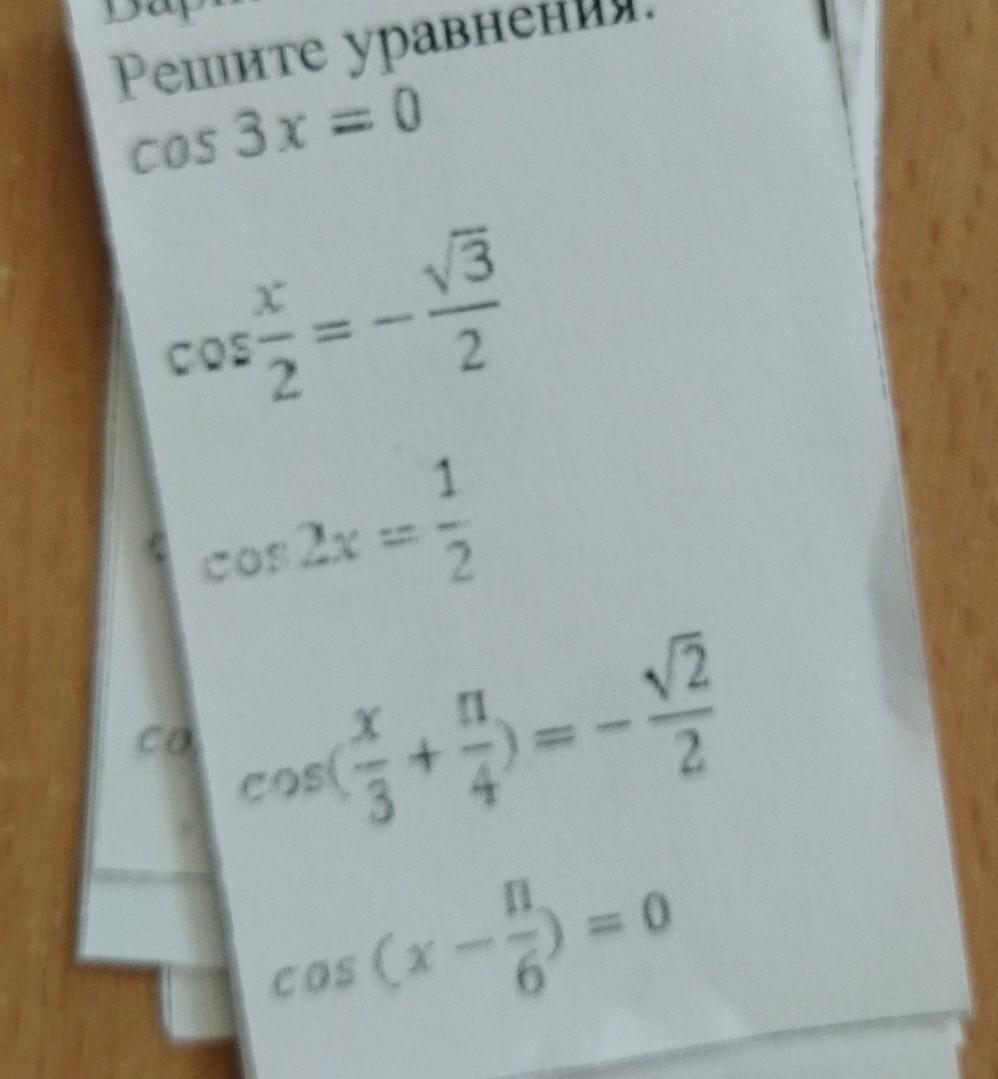 Решите уравнения.
cos 3x = 0
cos x/2 = − √3/2
cos 2x = 1/2
cos(x/3 + π/4) = − √2/2
co
cos (x − π/6) = 0